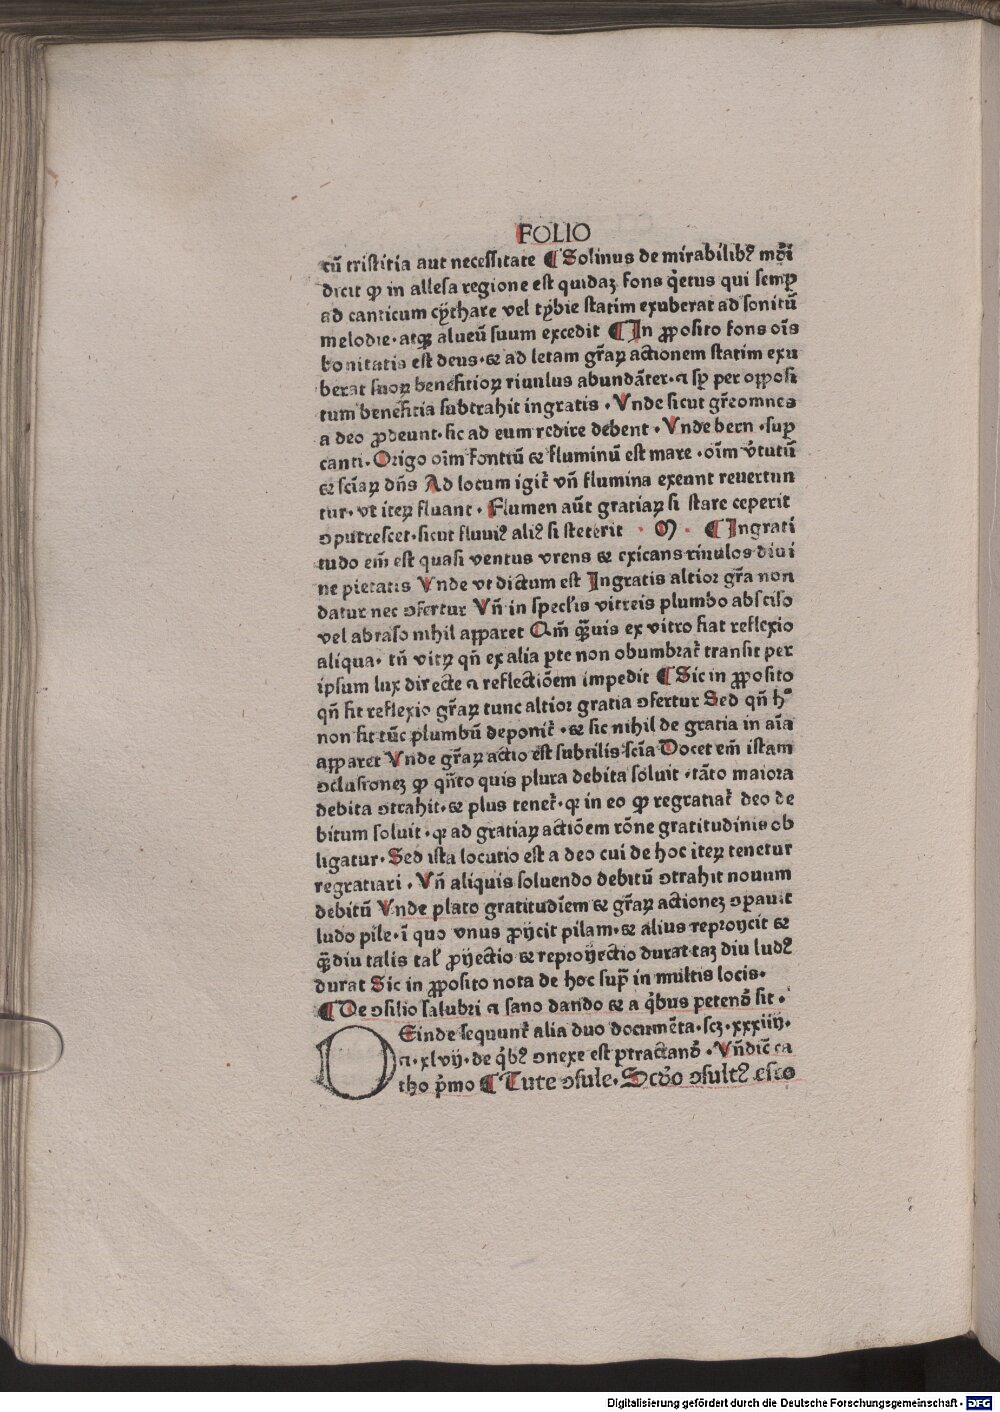 FOLIO
cū tristitia aut necessitate ¶ Solinus de mirabilibꝰ mūdi
dicit ꝙ in allesa regione est quidaꝫ fons q̇etus qui semꝑ
ad canticum cythare vel tybie statim exuberat ad sonitū
melodie· atqꝫ alueū suum excedit ¶ In ꝓposito fons oīs
bonitatis est deus· ⁊ ad letam gr̄aꝝ actionem statim exu
berat suoꝝ benefitioꝝ riuulus abundāter· ⁊ sꝑ per opposi
tum benefitia subtrahit ingratis · Vnde sicut gr̄e omnes
a deo ꝓdeunt· sic ad eum redire debent · Vnde bern · suꝑ
canti· Origo oīm fontiū ⁊ fluminū est mare · oīm v̓tutū
⁊ sciaꝝ dn̄s Ad locum igit̄ vn̄ flumina exeunt reuertun
tur· vt iteꝝ fluant · Flumen aūt gratiaꝝ si stare ceperit
ↄputrescet· sicut fluuiꝰ aliꝰ si steterit · M · ¶ Ingrati
tudo em̄ est quasi ventus vrens ⁊ exicans riuulos diui
ne pietatis Vnde vt dictum est Ingratis altior gr̄a non
datur nec ↄfertur Vn̄ in spec̄lis vitreis plumbo absciso
vel abraso nihil apparet Qm̄ qꝫuis ex vitro fiat reflexio
aliqua· tn̄ vitꝝ qn̄ ex alia ꝑte non obumbrat̄ transit per
ipsum lux directe ⁊ reflectiōem impedit ¶ Sic in ꝓposito
qn̄ fit reflexio gr̄aꝝ tunc altior gratia ↄfertur Sed qn̄ hͦ
non fit tūc plumbū deponit̄ · ⁊ sic nihil de gratia in aīa
apparet Vnde gr̄aꝝ actio est subtilis scīa Docet em̄ istam
ↄclusioneꝫ ꝙ qn̄to quis plura debita soluit · tāto maiora
debita ↄtrahit· ⁊ plus tenet̄· qꝛ in eo ꝙ regratiat̄ deo de
bitum soluit · qꝛ ad gratiaꝝ actiōem rōne gratitudinis ob
ligatur· Sed ista locutio est a deo cui de hoc iteꝝ tenetur
regratiari · Vn̄ aliquis soluendo debitū ↄtrahit nouum
debitū Vnde plato gratitudīem ⁊ gr̄aꝝ actioneꝫ ↄpauit
ludo pile· ī quo vnus ꝓijcit pilam· ⁊ alius reproijcit ⁊
qꝫdiu talis tal̓ ꝓijectio ⁊ reproijectio durat· taꝫ diu ludꝰ
durat Sic in ꝓposito nota de hoc supͣ in multis locis·
¶ De ↄsilio salubri ⁊ sano dando ⁊ a q̇bus petendū sit ·
DEinde sequunt̄ alia duo documēta· scꝫ· xxxiiij·
⁊· xlvij· de q̇bꝰ ↄnexe est ꝑtractandū · Vn̄ dic̄ ca
tho p̓mo ¶ Tute ↄsule· Scd̓o ↄsultꝰ esto
Digitalisierung gefördert durch die Deutsche Forschungsgemeinschaft - DFG